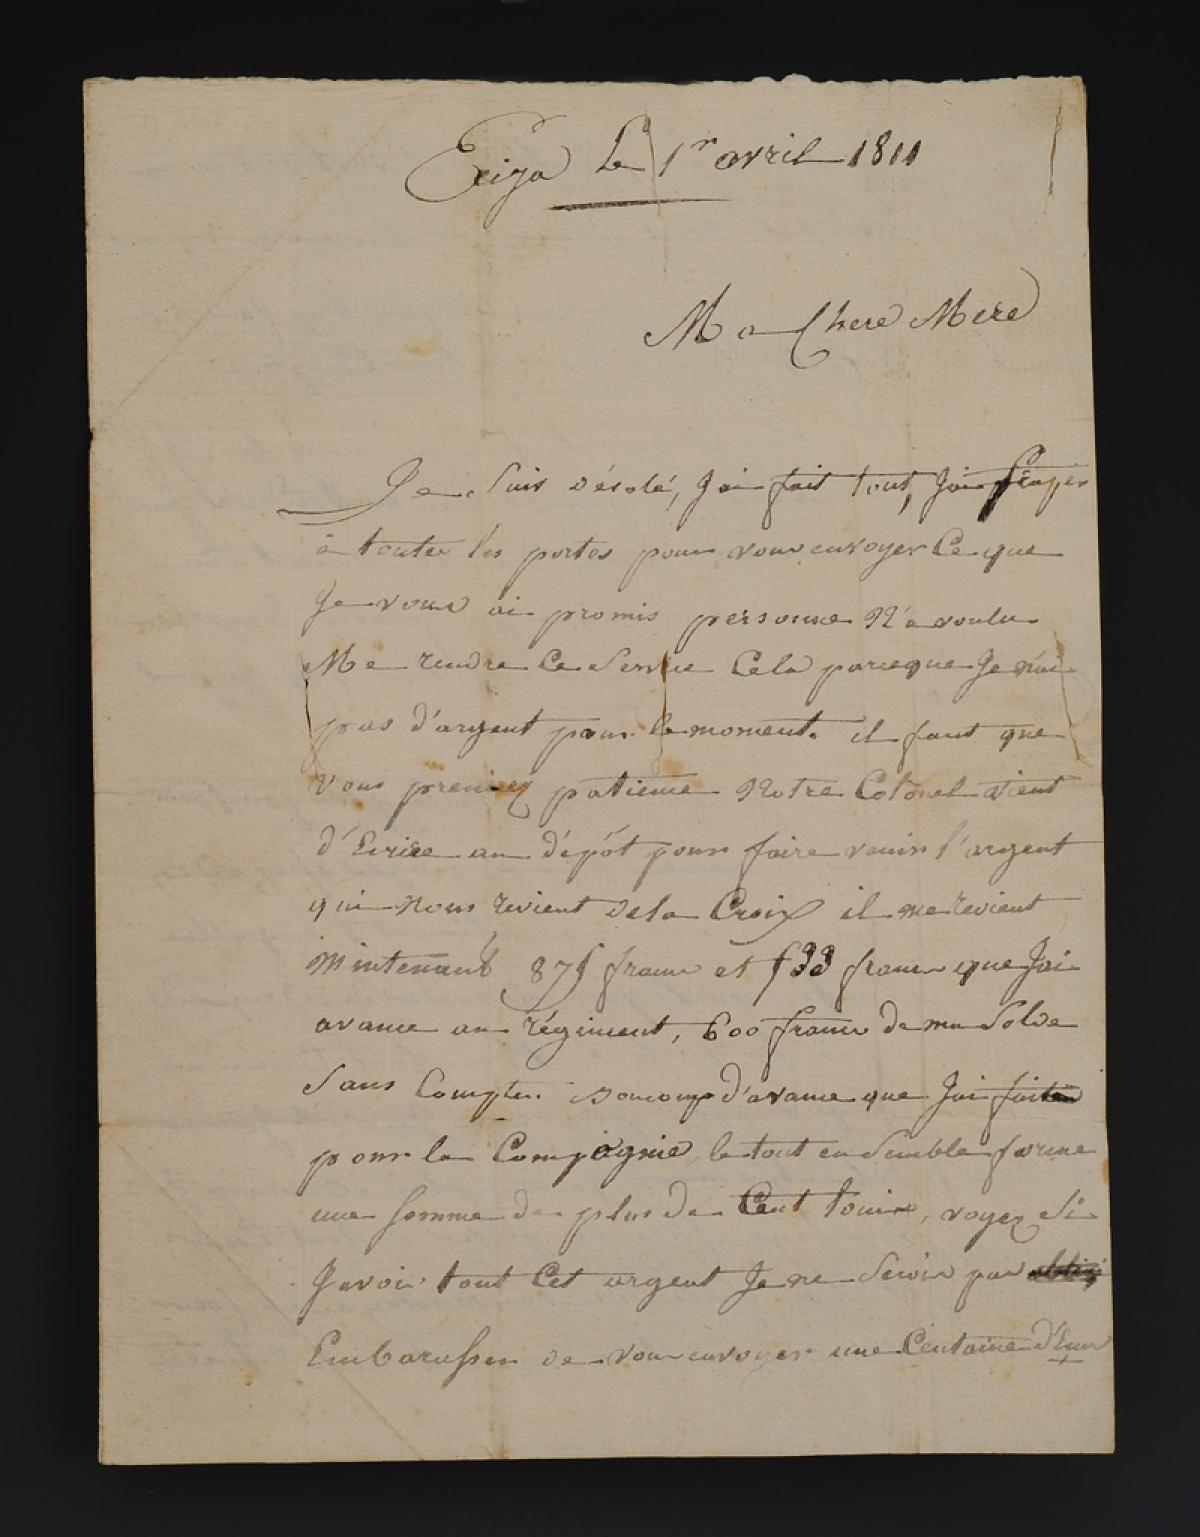 Eciga Le 1r avril 1811
Ma Chere Mere
Je Suis désolé, Jai fait tout, Jai frapér
à toute les portes pour vous envoyer Ce que
Je vous ai promis personne N'a voulu
Me rendre Ce Service Cela parceque Je n'ai
pas d'argent pour le moment. il faut que
vous preniez patience Notre Colonel vient
d'Ecrire au dépôt pour faire venir l'argent
qui nous revient dela Croix il me revient
Mintenant 875 franc et 133 franc que Jai
avance au régiment, 600 franc de ma Solde
Sans Compter boucoup d'avance que Jai faite
pour la Compagnie, le tout en Semble forme
une somme de plus de Cent louis, voyez Si
Javoi tout Cet argent Je ne Serois pas
Embarasser de vous envoyer une Centaine d'Ecus